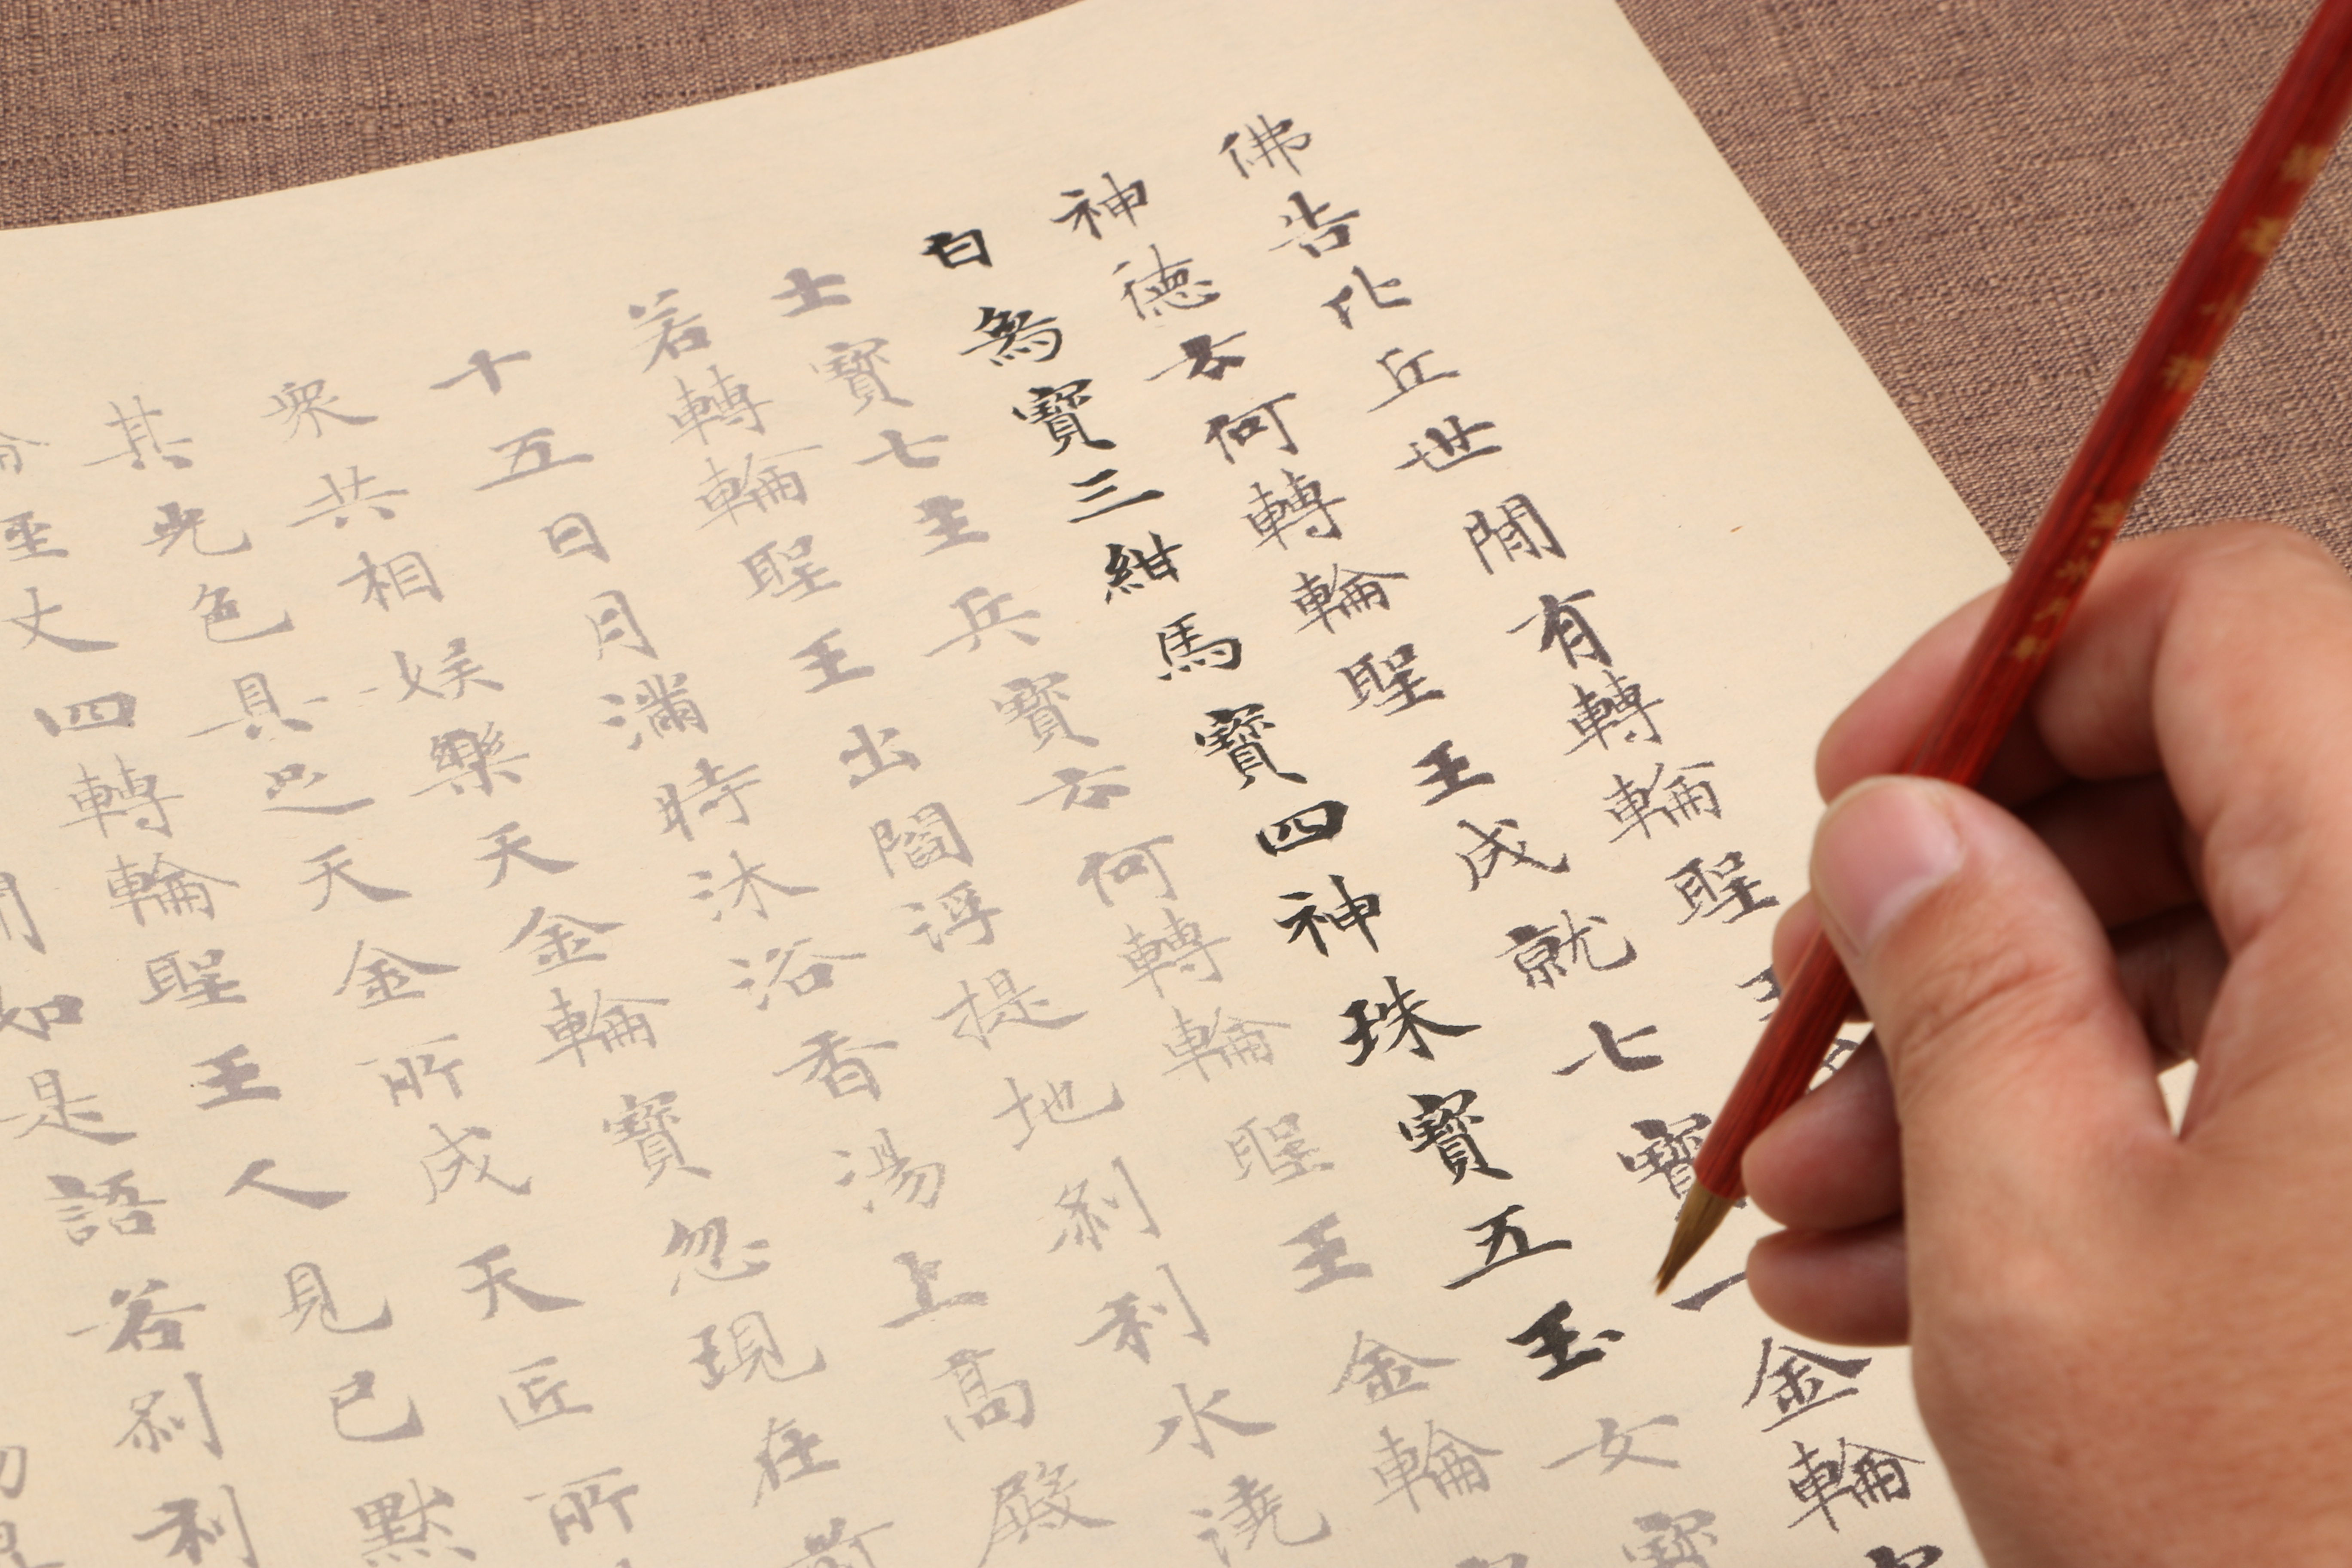 佛告比丘世間有轉輪聖王
神德云何轉輪聖王成就七寶一金輪
白象寶三紺馬寶四神珠寶五玉女寶
士寶七主兵寶云何轉輪聖王金輪
若轉輪聖王出閻浮提地刹利水澆
十五日月滿時沐浴香湯上高殿
衆共相娛樂天金輪寶忽現在前
其光色具足天金所成天匠所
丈四轉輪聖王人見已默
如是語若刹利